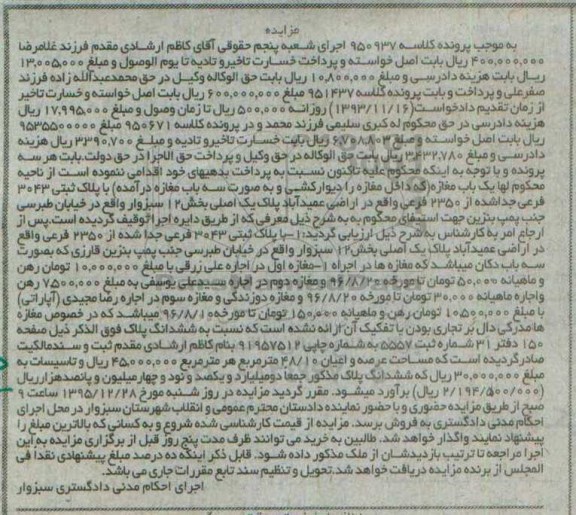 مزایده
به موجب پرونده کلاسه ۹۵۰۹۳۷ اجرای شعبه پنجم حقوقی آقای کاظم ارشادی مقدم فرزند غلامرضا
۴۰۰,۰۰۰,۰۰۰ ریال بابت اصل خواسته و پرداخت خسارت تاخیر و تادیه تا یوم الوصول و مبلغ ۱۳,۰۰۵,۰۰۰
ریال بابت هزینه دادرسی و مبلغ ۱۰,۸۰۰,۰۰۰ ریال بابت حق الوکاله وکیل در حق محمدعبدالله زاده فرزند
صفرعلی و پرداخت و بابت پرونده کلاسه ۹۵۱۴۳۷ مبلغ ۶۰۰,۰۰۰,۰۰۰ ریال بابت اصل خواسته و خسارت تاخیر
از زمان تقدیم دادخواست (۱۳۹۳/۱۱/۱۶) روزانه ۵۰۰,۰۰۰ ریال تا زمان وصول و مبلغ ۱۷,۹۹۵,۰۰۰ ریال
هزینه دادرسی در حق محکوم له کبری سلیمی فرزند محمد و در پرونده کلاسه ۹۵۰۶۷۱ مبلغ ۹۵۳۵۵۰۰۰۰۰
ریال بابت اصل خواسته و مبلغ ریال بابت خسارت تاخیر و تادیه و مبلغ ۳۳۹۰,۷۰۰ ریال هزینه
دادرسی و مبلغ ۳,۴۳۲,۷۸۰ ریال بابت حق الوکاله در حق وکیل و پرداخت حق الاجرا در حق دولت. بابت هر سه
پرونده و با توجه به اینکه محکوم علیه تاکنون نسبت به پرداخت بدهیهای خود اقدامی ننموده است از ناحیه
محکوم لها یک باب مغازه (که داخل مغازه را دیوارکشی و به صورت سه باب مغازه درآمده) با پلاک ثبتی ۳۰۴۳
فرعی جداشده از ۲۳۵۰ فرعی واقع در اراضی عمیدآباد پلاک یک اصلی بخش ۱۲ سبزوار واقع در خیابان طبرسی
جنب پمپ بنزین جهت استیفای محکوم به به شرح ذیل معرفی که از طریق دایره اجرا توقیف گردیده است. پس از
ارجاع امر به کارشناس به شرح ذیل ارزیابی گردید: ۱- با پلاک ثبتی ۳۰۴۳ فرعی جدا شده از ۲۳۵۰ فرعی واقع
در اراضی عمیدآباد پلاک یک اصلی بخش ۱۲ سبزوار واقع در خیابان طبرسی جنب پمپ بنزین فازری که بصورت
سه باب دکان میباشد که مغازه ها در اجراه ۱- مغازه اول در اجاره علی زرقی با مبلغ ۱۰,۰۰۰,۰۰۰ تومان رهن
و ماهیانه ۵۰,۰۰۰ تومان تا مورخه ۹۶/۸/۲۰ و مغازه دوم در اجاره سیدعلی یوسفی به مبلغ ۷۵۰۰,۰۰۰ رهن
و اجاره ماهیانه ۳۰,۰۰۰ تومان تا مورخه ۹۶/۸/۲۰ و مغازه دوزندگی و مغازه سوم در اجاره رضا مجیدی (آپاراتی)
با مبلغ ۱۰۵۰۰,۰۰۰ تومان رهن و ماهیانه ۱۵۰,۰۰۰ تومان تا مورخه ۹۶/۸/۱۰ میباشد که در خصوص مغازه
ها مدرکی دال بر تجاری بودن یا تفکیک آن ارائه نشده است که نسبت به ششدانگ پلاک فوق الذکر ذیل صفحه
۱۵۰ دفتر ۳۱ شماره ثبت ۵۵۵۷ به شماره چاپی ۹۱۹۵۷۵۱۲ بنام کاظم ارشادی مقدم ثبت و سند مالکیت
صادر گردیده است که مساحت عرصه و اعیان ۴۸/۱۰ مترمربع هر مترمربع ۴۵,۰۰۰,۰۰۰ ریال و تاسیسات به
مبلغ ۳۰,۰۰۰,۰۰۰ ریال که ششدانگ پلاک مذکور جمعا دو میلیارد و یکصد و نود و چهار میلیون و پانصد هزار ریال
(۲/۱۹۴/۵۰۰/۰۰۰ ریال) برآورد میشود. مقرر گردید مزایده در روز شنبه مورخ ۱۳۹۵/۱۲/۲۸ ساعت ۹
صبح از طریق مزایده حضوری و با حضور نماینده دادستان محترم عمومی و انقلاب شهرستان سبزوار در محل اجرای
احکام مدنی دادگستری به فروش برسد. مزایده از قیمت کارشناسی شده شروع و به کسانی که بالاترین مبلغ را
پیشنهاد نمایند واگذار خواهد شد. طالبین به خرید می توانند ظرف مدت پنج روز قبل از برگزاری مزایده به این
اجرا مراجعه تا ترتیب بازدیدشان از ملک مذکور داده شود. قابل ذکر اینکه ده درصد مبلغ پیشنهادی نقداً فی
المجلس از برنده مزایده دریافت خواهد شد. تحویل و تنظیم سند تابع مقررات جاری می باشد.
اجرای احکام مدنی دادگستری سبزوار